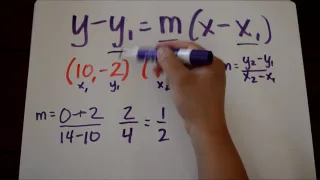 y-y₁ = m(x-x₁)
(10,-2) (
x₁ y₁ x₂
m = y₂-y₁ / x₂-x₁
m = 0+2 / 14-10 2/4 = 1/2